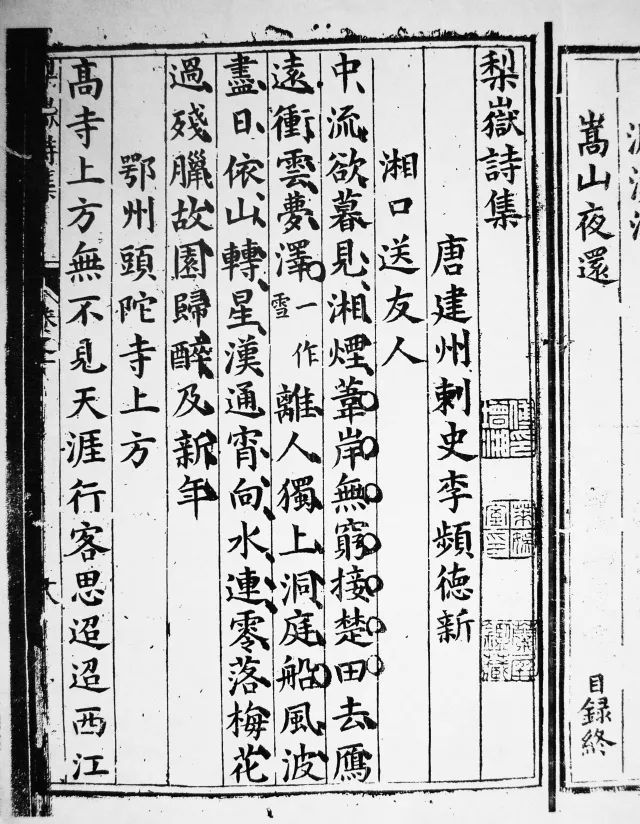 嵩山夜還
目録終
梨嶽詩集
唐建州刺史李頻徳新
湘口送友人
中流欲暮見湘煙葦岸無窮接楚田去鴈
遠衝雲夢澤一作雪離人獨上洞庭船風波
盡日依山轉星漢通宵向水連零落梅花
過殘臘故園歸醉及新年
鄂州頭陀寺上方
髙寺上方無不見天涯行客思迢迢西江